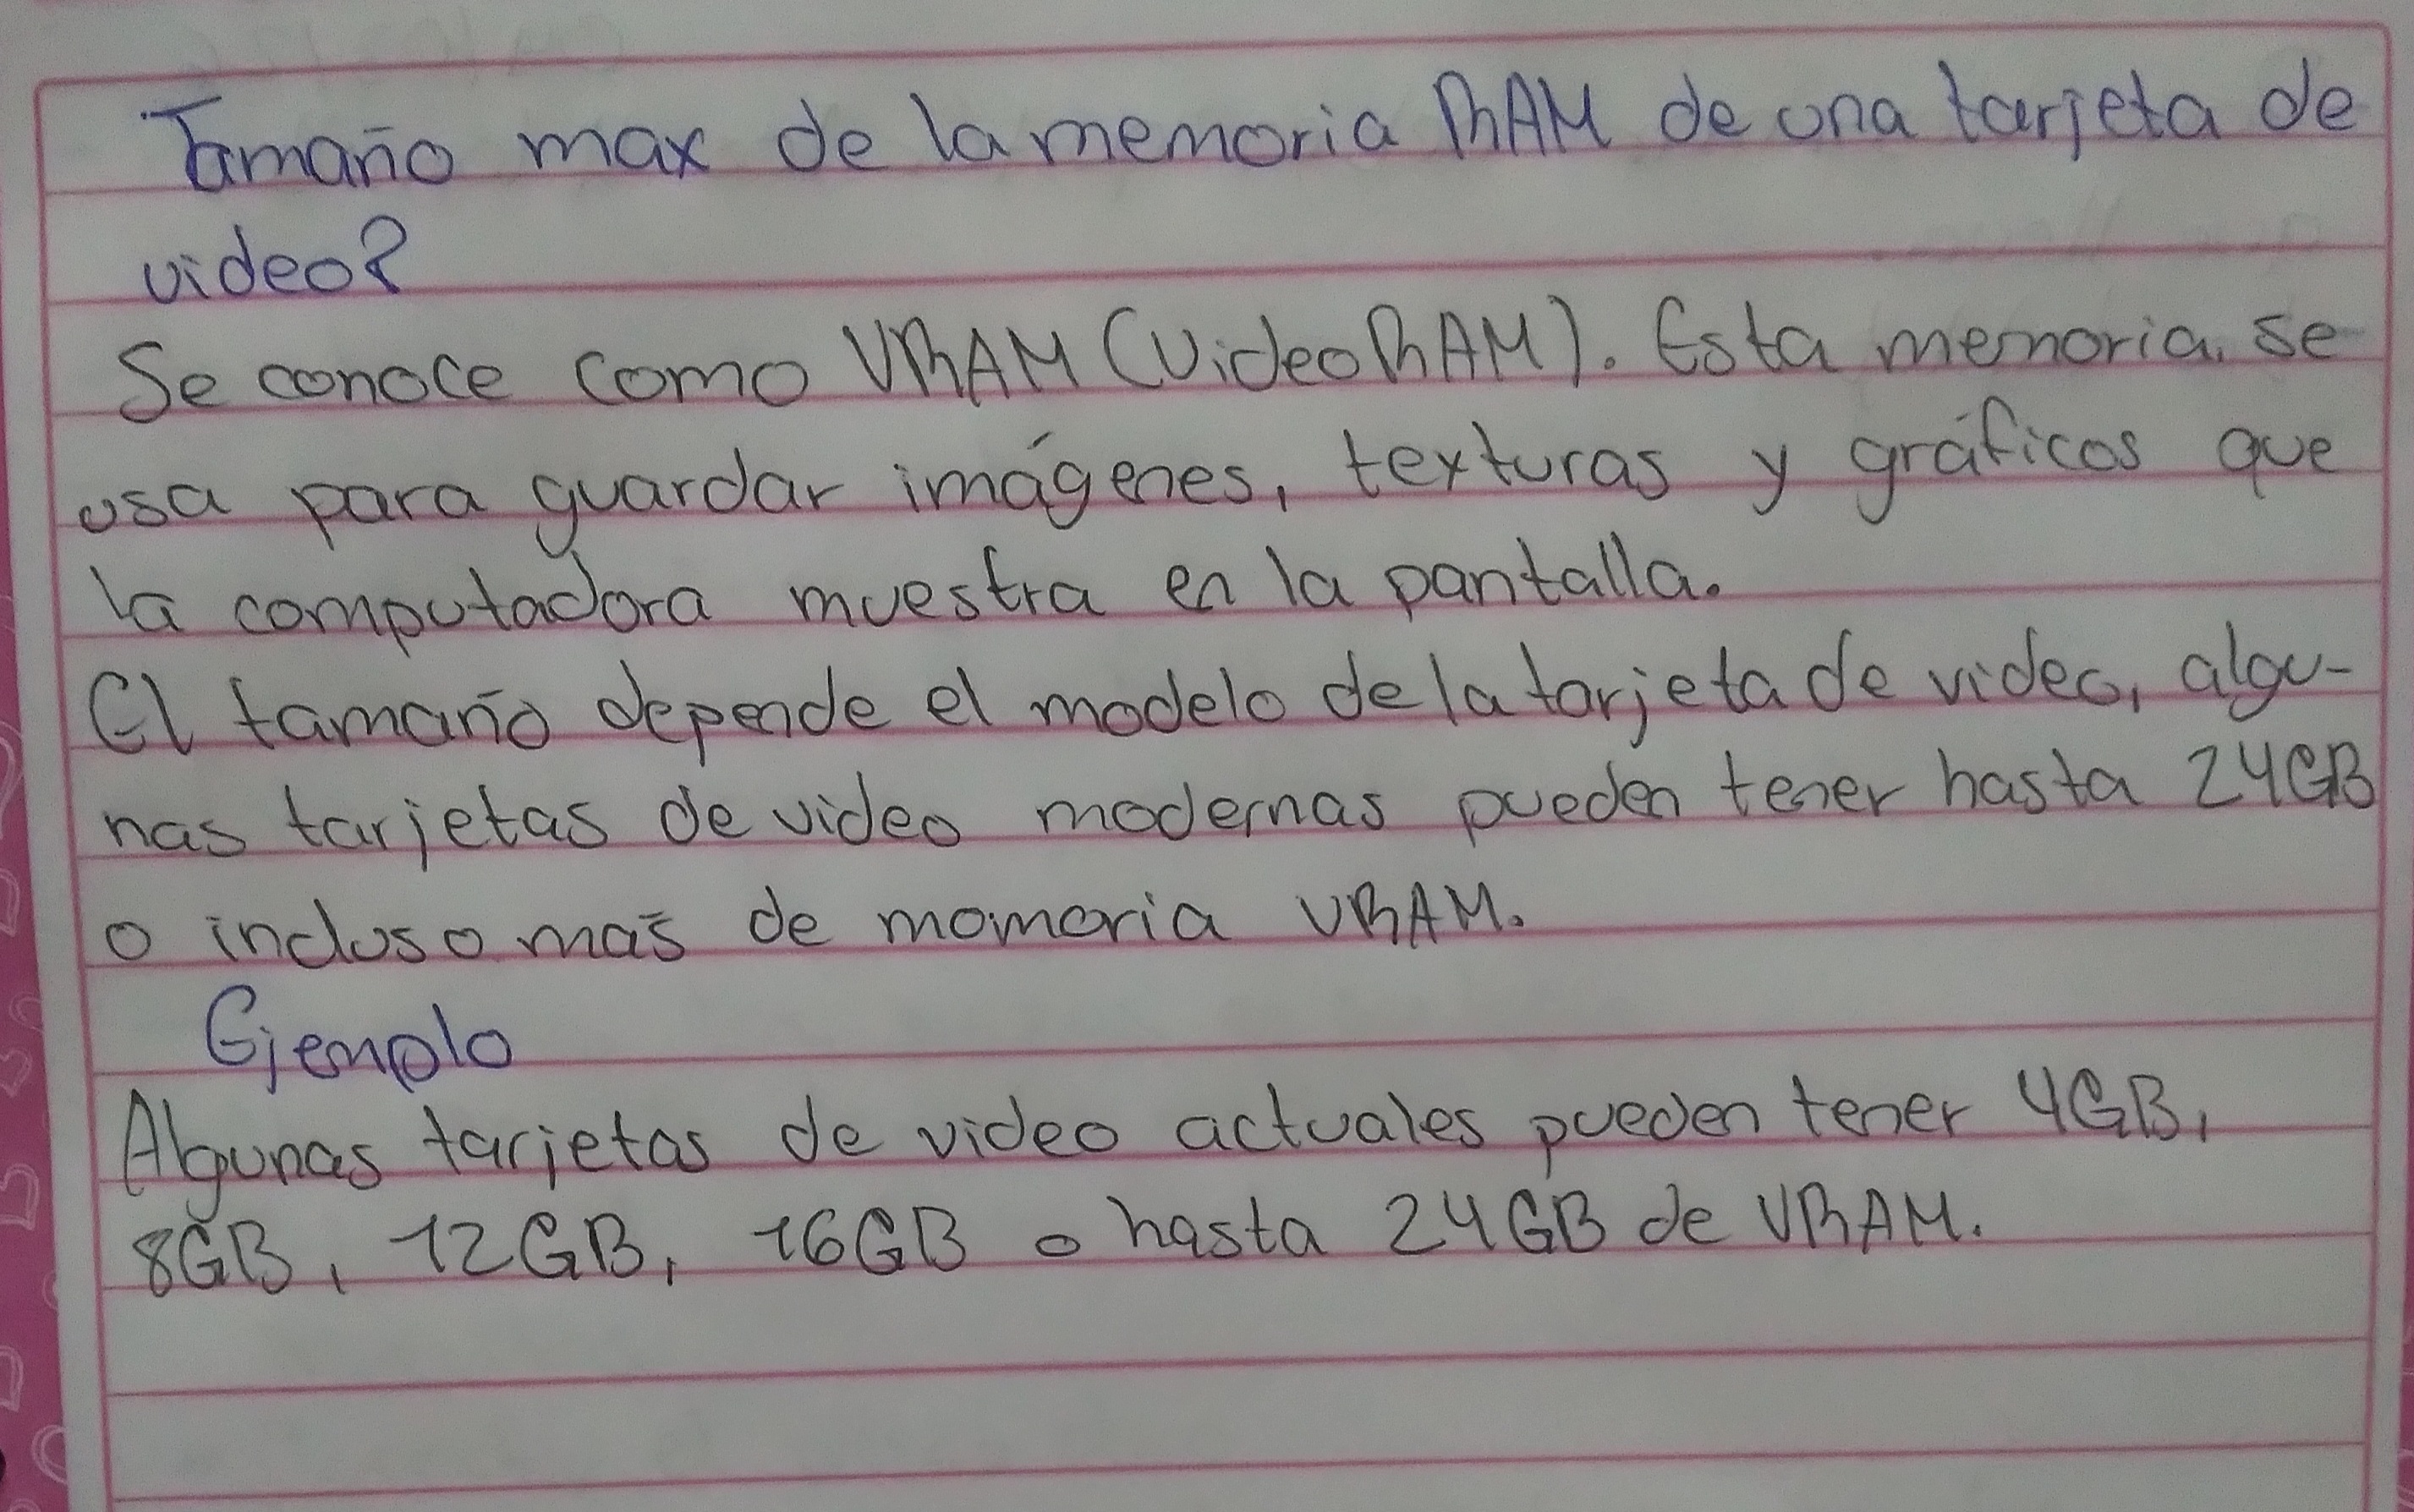 Tamaño max de la memoria RAM de una tarjeta de
video?
Se conoce como VRAM (Video RAM). Esta memoria se
usa para guardar imágenes, texturas y gráficos que
la computadora muestra en la pantalla.
El tamaño depende el modelo de la tarjeta de video, algu-
nas tarjetas de video modernas pueden tener hasta 24GB
o incluso más de momoria VRAM.
Ejemplo
Algunas tarjetas de video actuales pueden tener 4GB,
8GB, 12GB, 16GB o hasta 24GB de VRAM.